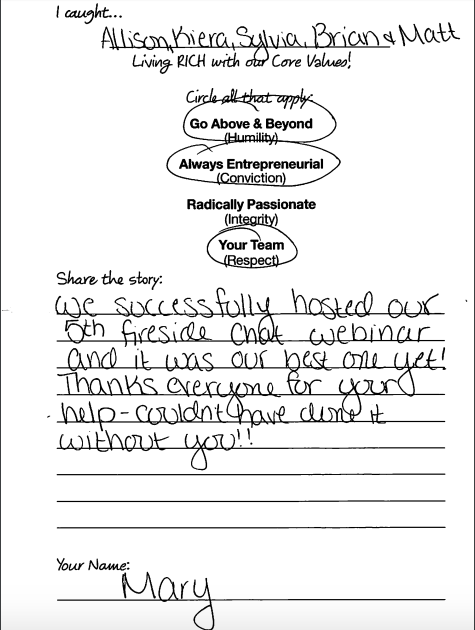 I caught...
Allison, Kiera, Sylvia, Brian & Matt
Living RICH with our Core Values!
Circle all that apply:
Go Above & Beyond
(Humility)
Always Entrepreneurial
(Conviction)
Radically Passionate
(Integrity)
Your Team
(Respect)
Share the story:
We successfully hosted our
5th fireside chat webinar
and it was our best one yet!
Thanks everyone for your
help - couldnt have done it
without you!!
Your Name:
Mary